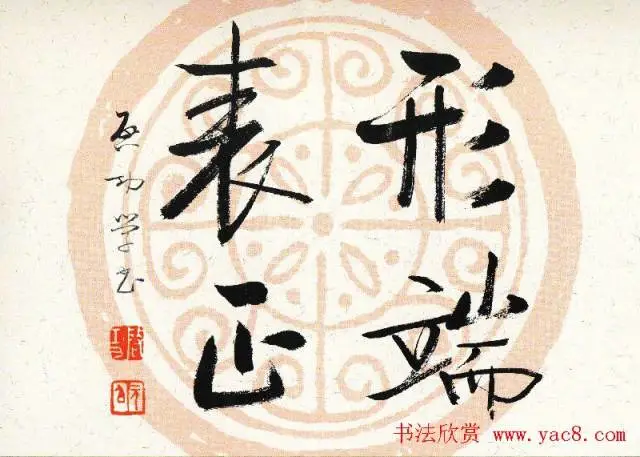 形端
表正
启功学书
书法欣赏 www.yac8.com